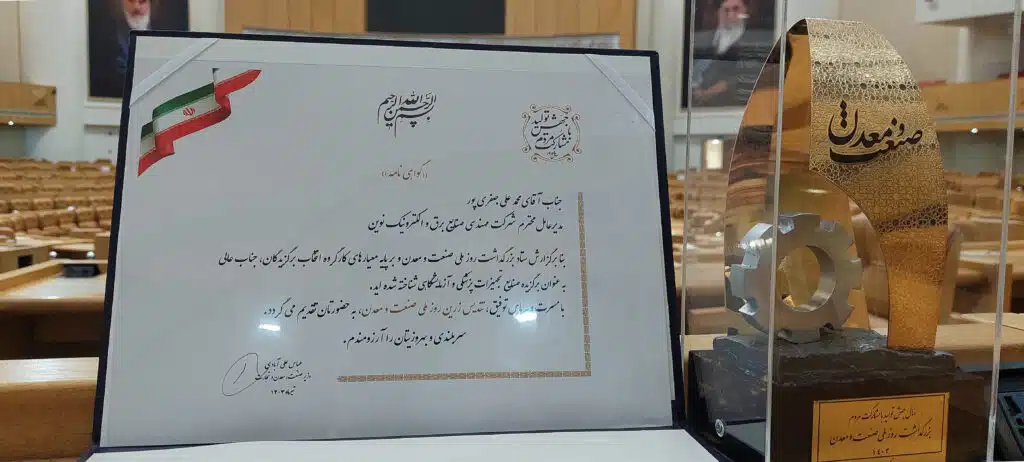 بسم الله الرحمن الرحیم
جهش تولید
با
مشارکت مردم
((گواهی نامه))
جناب آقای محمد علی جعفری پور
مدیرعامل محترم شرکت مهندسی صنایع برق و الکترونیک نوین
بنا بر گزارش ستاد بزرگداشت روز ملی صنعت و معدن و بر پایه معیارهای کارگروه انتخاب برگزیدگان، جناب عالی
به عنوان برگزیده صنایع تجهیزات پزشکی و آزمایشگاهی شناخته شده اید.
با مسرت و سپاس توفیق، تندیس زرین روز ملی صنعت و معدن، به حضورتان تقدیم می گردد.
سربلندی و بهروزیتان را آرزومندم.
عباس علی آبادی
وزیر صنعت، معدن و تجارت
تیرماه ۱۴۰۳
صنعت و معدن
سال جهش تولید با مشارکت مردم
بزرگداشت روز ملی صنعت و معدن
۱۴۰۳